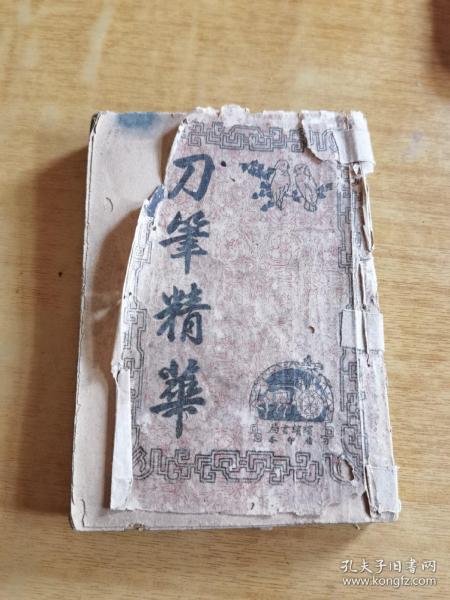 刀筆精華
孔夫子旧书网
www.kongfz.com